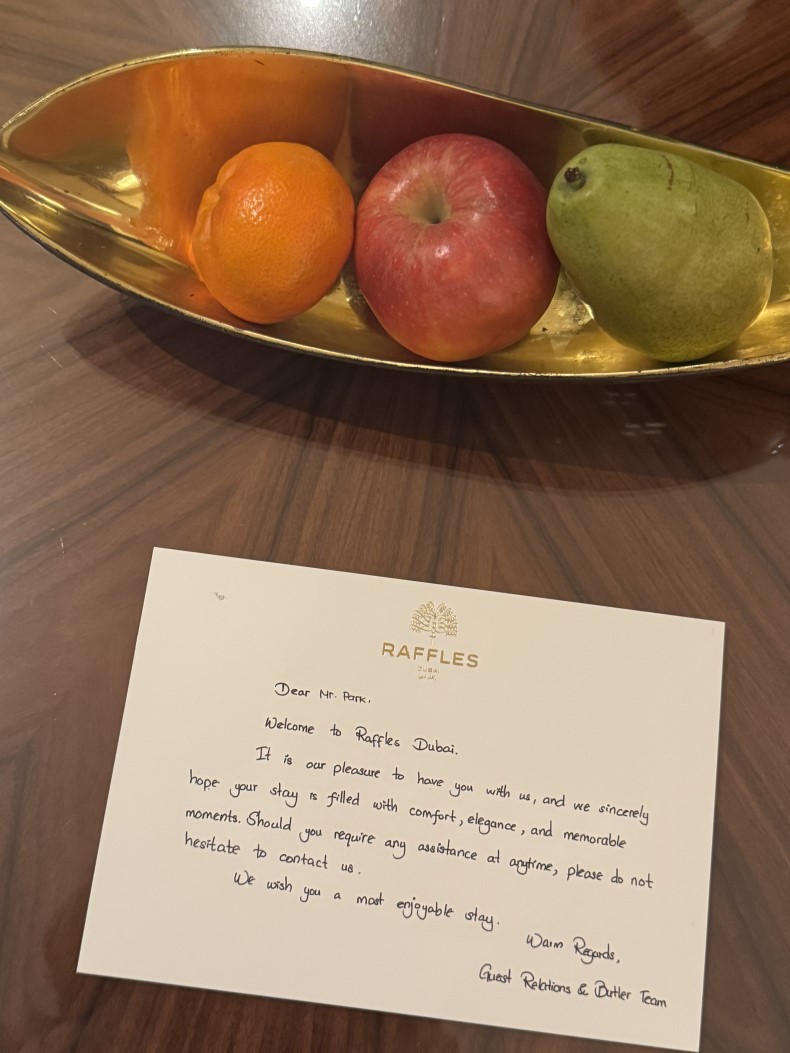 RAFFLES
DUBAI
Dear Mr. Park,
Welcome to Raffles Dubai.
It is our pleasure to have you with us, and we sincerely
hope your stay is filled with comfort, elegance, and memorable
moments. Should you require any assistance at anytime, please do not
hesitate to contact us.
We wish you a most enjoyable stay.
Warm Regards,
Guest Relations & Butler Team